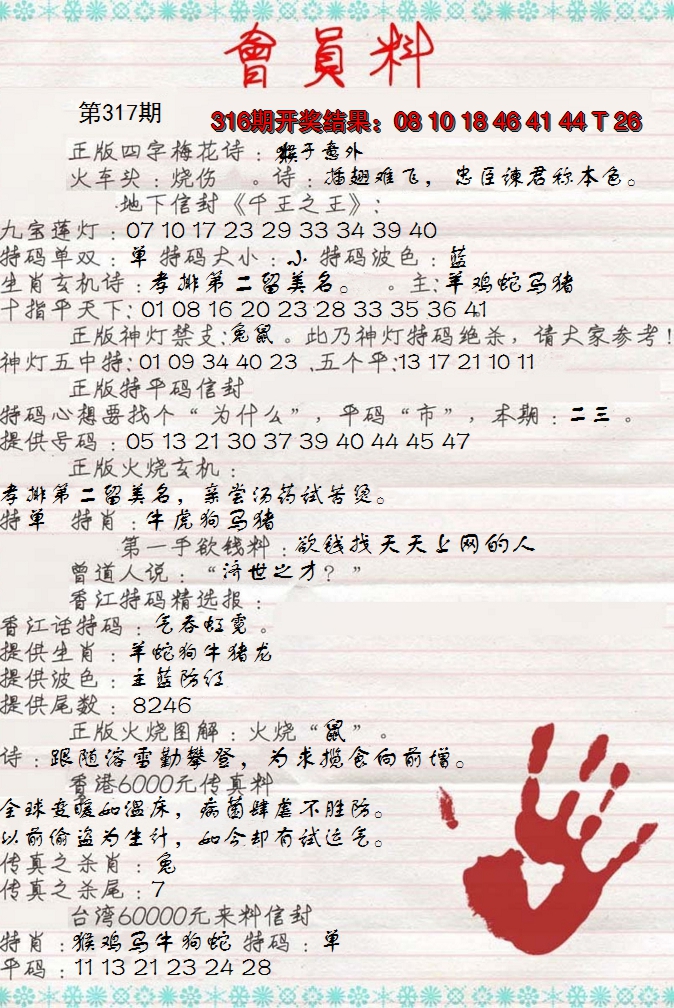 會員料
第317期
316期开奖结果：08 10 18 46 41 44 T 26
正版四字梅花诗：猴子意外
火车头：烧伤 。诗：插翅难飞，忠臣谏君称本色。
地下信封《千王之王》：
九宝莲灯：07 10 17 23 29 33 34 39 40
特码单双：单 特码大小：小 特码波色：蓝
生肖玄机诗：孝排第二留美名。 。主：羊鸡蛇马猪
十指平天下：01 08 16 20 23 28 33 35 36 41
正版神灯禁支：兔鼠。此乃神灯特码绝杀，请大家参考！
神灯五中特：01 09 34 40 23 .五个平：13 17 21 10 11
正版特平码信封
特码心想要找个“为什么”，平码“市”，本期：二三 。
提供号码：05 13 21 30 37 39 40 44 45 47
正版火烧玄机：
孝排第二留美名，亲尝汤药试苦烫。
特单 特肖：牛虎狗马猪
第一手欲钱料：欲钱找天天上网的人
曾道人说：“济世之才？”
香江特码精选报：
香江话特码：气吞虹霓 。
提供生肖：羊蛇狗牛猪龙
提供波色：主蓝防红
提供尾数：8246
正版火烧图解：火烧“鼠”。
诗：跟随溶雪勤攀登，为求揽食向前增。
香港6000元传真料
全球变暖如温床，病菌肆虐不胜防。
以前偷盗为生计，如今却有试运气。
传真之杀肖：兔
传真之杀尾：7
台湾60000元来料信封
特肖：猴鸡马牛狗蛇 特码：单
平码：11 13 21 23 24 28